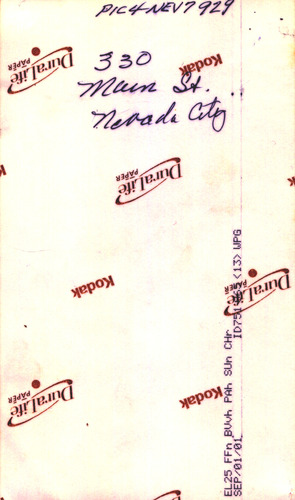 PIC4-NEV7929
330
Main St.
Nevada City
DuraLife
PAPER
Kodak
Kodak
DuraLife
PAPER
Kodak
DuraLife
PAPER
DuraLife
PAPER
Kodak
Kodak
EL25 FFn BUvh PAh SUn CHr
SEP/01/01 <13> WPG